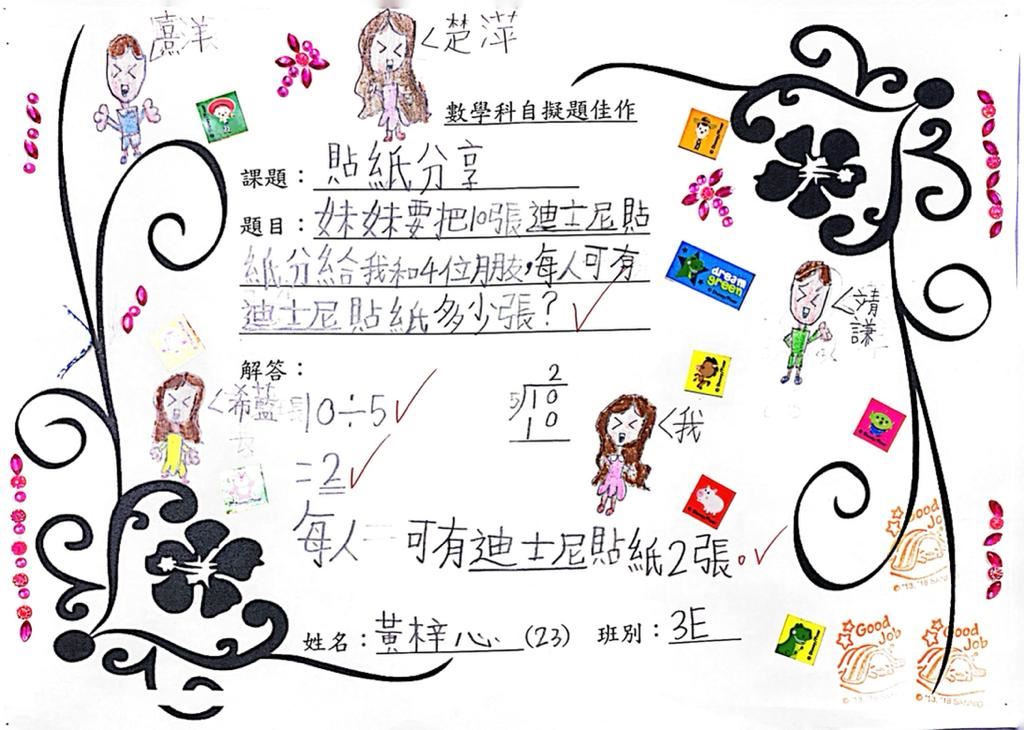 熹洋
楚萍
數學科自擬題佳作
課題：貼紙分享
題目：妹妹要把10張迪士尼貼
紙分給我和4位朋友，每人可有
迪士尼貼紙多少張？
dream
green
靖
謙
解答：
希藍
10÷5
=2
2
5 10
10
我
每人可有迪士尼貼紙2張。
姓名：黃梓心 (23) 班別：3E
Good
Job
Good
Job
Good
Job